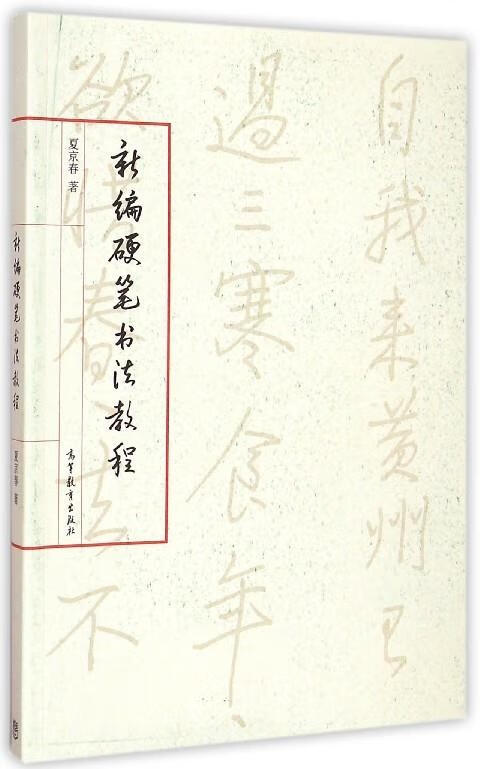 自我来黄州已
過三寒食年〻
欲惜春〻去不
新编硬笔书法教程
夏京春 著
高等教育出版社
新编硬笔书法教程
夏京春 著